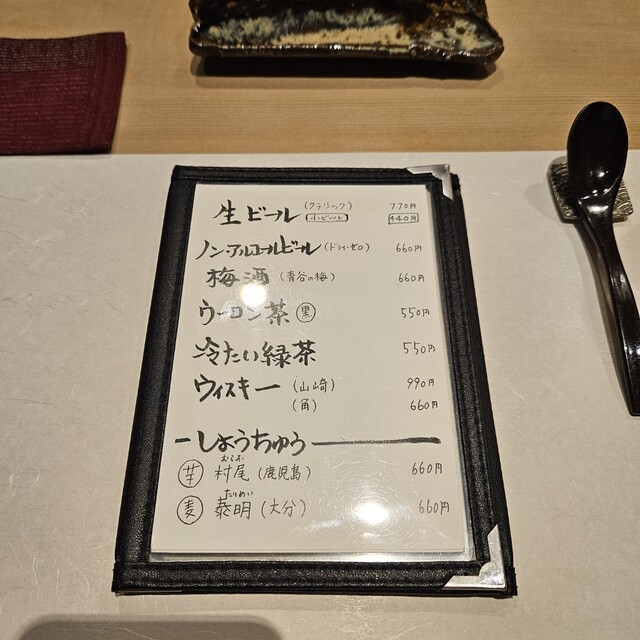 生ビール (クラシック) 770円
小ビール 440円
ノンアルコールビール (ドライ・ゼロ) 660円
梅酒 (青谷の梅) 660円
ウーロン茶 黒 550円
冷たい緑茶 550円
ウィスキー (山崎) 990円
(角) 660円
しょうちゅう
むらお
芋 村尾 (鹿児島) 660円
たいめい
麦 泰明 (大分) 660円